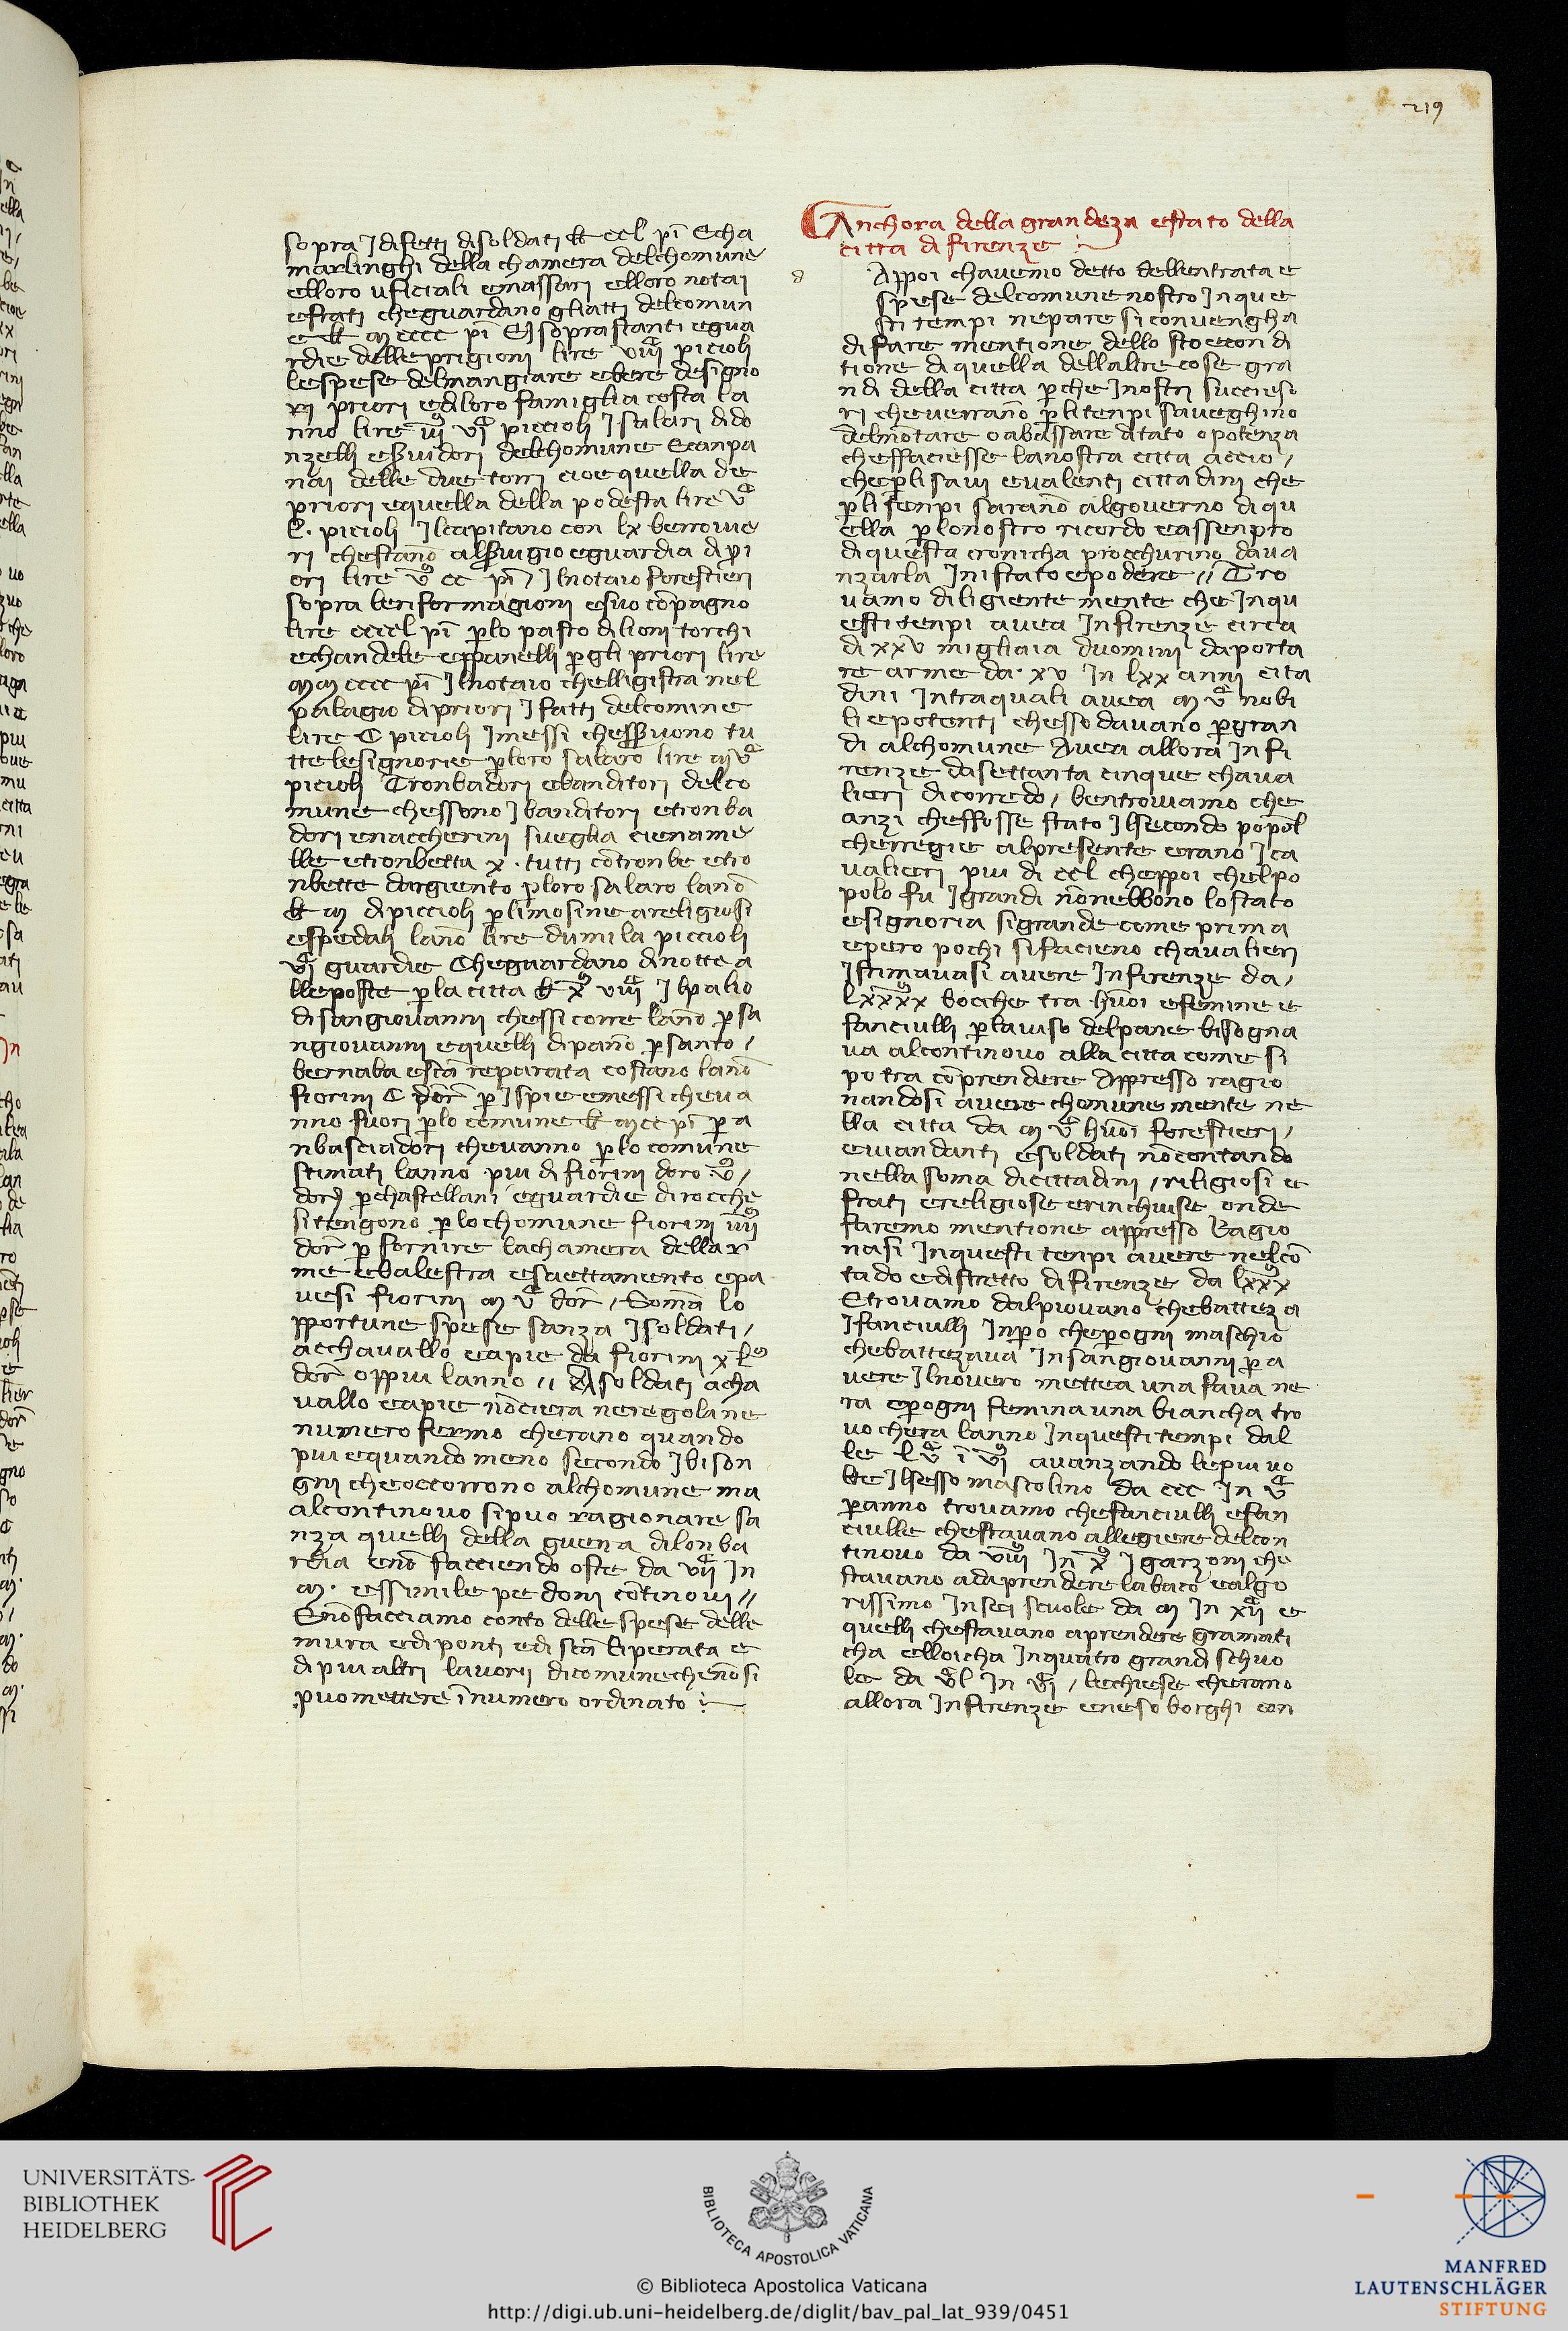 219
sopra j difetti di soldati ₶ ccl pi Echa
marlinghi della chamera delchomune
elloro uficiali emassari elloro notai
efrati cheguardano gliatti delcomun
e ₶ m cccc pi Ej soprastanti egua
rdie delleprigioni lire viijᶜ picioli
lespese delmangiare ebere designo
rj priori edi loro famiglia costa la
nno lire iijᵐ vjᶜ piccioli j salari dido
nzelli eßuidori delchomune Ecanpa
nai delle due torri cioe quella de
priori equella della podesta lire vᶜ
L. picioli Jlcapitano con lx berrouie
ri chestano alßuigio eguardia di pi
ori lire vᵐ cc pi / Jlnotaio forestieri
sopra leriformagioni esuo conpagno
lire cccc l pi plo pasto dilioni torchi
echandele eppanelli pgli priori lire
mm cccc pi Jlnotaio chelligistra nel
palagio dipriori j fatti delcomine
lire C picioli Jmessi cheßuono tu
tte lesignorie ploro salaro lire m vᶜ
picioli Tronbadori ebanditori delco
mune chessono j banditori etronba
dori enaccherini sueglia ciename
lle etronbetta x. tutti cōtronbe etro
nbette dargiento ploro salaro lanō
₶ m di piccioli plimosine areligiosi
espedali lanō lire dumila piccioli
vjᶜ guardie Cheguardano dinotte a
lleposte pla citta ₶ xᵐ viijᶜ Jlpalio
disangiouanni chessi corre lanō psa
ngiouanni equelli dipano psanto /
bernaba escā reparata costano lanō
fiorini C dor p j spie emessi cheua
nno fuori plo comune ₶ mcc pi p a
nbasciadori cheuanno plo comune
stimati lanno piu di fiorini doro vᵐ /
doro pchastellani eguardie dirocche
sitengono plochomune fiorini iiijᵐ
dor p fornire lachamera dellar
me ebalestra esaettamento epa
uesi fiorini m vᶜ dor / Somā lo
pportune spese sanza j soldati /
acchauallo eapie da fiorini xLᵐ
dor oppiu lanno // Asoldati acha
uallo eapie nōciera neregola ne
numero fermo cherano quando
piu equando meno secondo jbison
gni cheoccorrono alchomune ma
alcontinouo sipuo ragionare sa
nza quelli della guerra dilonba
rdia enō facciendo oste da vijᶜ in
m. essimile pedoni cōtinoui //
Enōfacciamo conto delle spese delle
mura edi ponti edi scā liperata e
di piu altri lauorii dicomunechenōsi
puomettere īnumero ordinato
Anchora della grandeza estato della
citta di firenze
a
Appoi chauemo detto dellentrata e
spese delcomunenostro jnque
sti tempi nepare si conuengha
di fare mentione dello sto econ di
tione di quella dellaltre cose gra
ndi della citta pche jnostri succieso
ri cheuerrano pli tenpi saueghino
delmōtare o abassare distato o potenza
cheffaciesse lanostra citta accio /
chepli saui eualenti cittadini che
pli tenpi sarano algouerno di qu
ella plonostro ricordo eassenpro
diquesta cronicha procchurino daua
nzarla jnistato epodere // Tro
uamo diligiente mente che jnqu
esti tenpi auea jnfirenze circa
di xxv migliaia duomini daporta
re arme da. xv in lxx anni cita
dini jntraquali auea m vᶜ nobi
li epotenti chessodauano pgran
di alchomune Auea allora jn fi
renze dasettanta cinque chaua
lieri dicorredo / bentrouiamo che
anzi cheffosse stato jlsecondo popol
cherregie alpresente erano j ca
ualieri piu di ccl cheppoi chelpo
polo fu j grandi nōnebbono lostato
esignoria sigrande come prima
epero pochi sifacieno chaualieri
jstimauasi auere jnfirenze da /
lxxxxᵐ bocche tra huoi efemine e
fanciulli plauiso delpane bisogna
ua alcontinouo alla citta come si
po tra cōprendere Appresso ragio
nandosi auere chomunemente ne
lla citta da m vᶜ huoi forestieri /
euiandanti esoldati nōcontando
nella soma dicittadini / riligiosi e
frati ereligiose erinchiuse onde
faremo mentione appresso Ragio
nasi jnquesti tenpi auere nelcō
tado edistretto difirenze da lxxxᵐ
Etrouamo dalpiouano chebatteza
jfanciulli jnpo chepogni maschio
chebattezaua jnsangiouanni p a
uere jlnouero mettea una faua ne
ra epogni femina una biancha tro
uo chera lanno jnquesti tempi dal
le Lvᶜ ī vjᵐ auanzando lepiu uo
lte jlsesso mascolino da ccc in vᶜ
panno trouamo chefanciulli efan
ciulle chestauano allegiere delcon
tinouo da viijᵐ jn xᵐ j garzoni che
stauano adaprendere labaco ealgo
rissimo jnsei scuole da m in xijᶜ e
quelli chestauano aprendere gramati
cha elloicha jnquatro grandi schuo
le da vᶜl in vjᶜ / lechiese cherano
allora jnfirenze eneso borghi con
UNIVERSITÄTS-
BIBLIOTHEK
HEIDELBERG
BIBLIOTECA APOSTOLICA VATICANA
© Biblioteca Apostolica Vaticana
http://digi.ub.uni-heidelberg.de/diglit/bav_pal_lat_939/0451
MANFRED
LAUTENSCHLÄGER
STIFTUNG